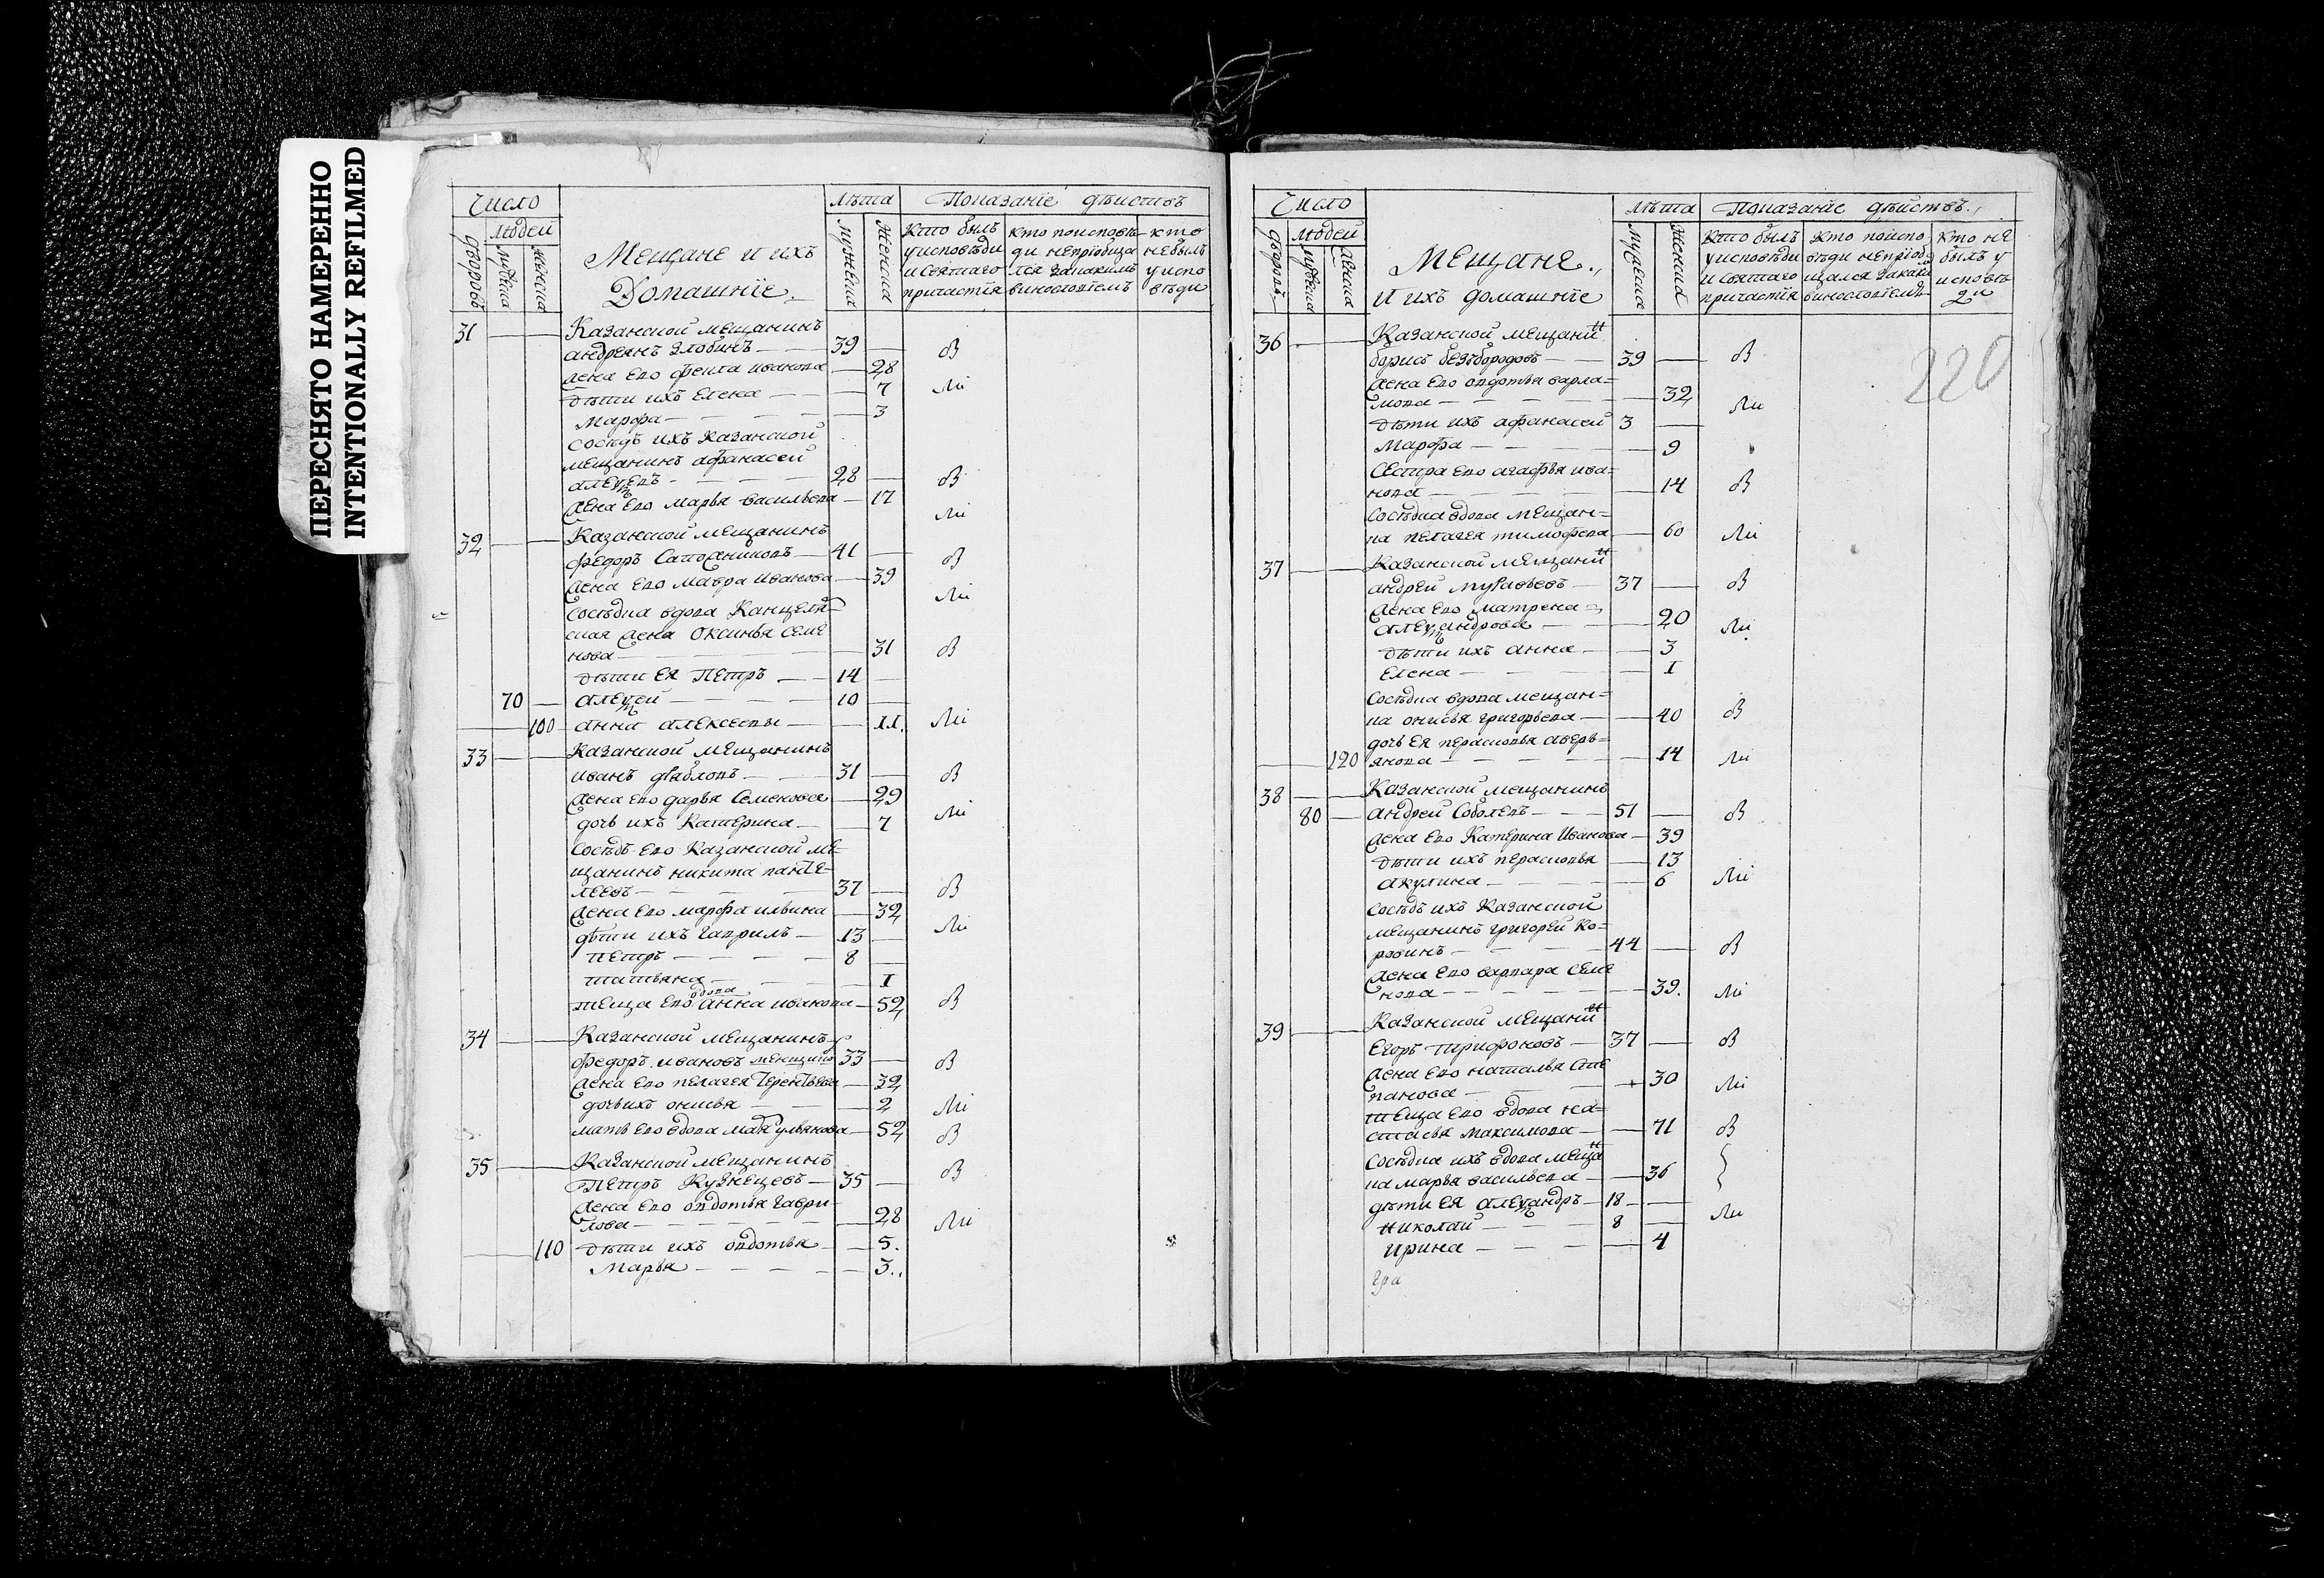 ПЕРЕСНЯТО НАМЕРЕННО
INTENTIONALLY REFILMED
Число
Людей
дворовъ
мужеска
женска
Мещане и ихъ
Домашнїе
Лѣта
мужеска
женска
Показанїе дѣиствъ
Кто былъ
у исповѣди
и святаго
причастїя
кто поисповѣ-
ди непрїобща
лся запакимъ
виносло­вїемъ
кто
небылъ
у испо
вѣди
31 Казанской мещанинъ
андреянъ Злобинъ 39 В
жена его фекла иванова 28
дѣти ихъ Елена 7 Ли
Марфа 3
сосѣдъ ихъ Казанской
мещанинъ афанасеи
28 В
жена его Марья васильева 17
Ли
32 Казанской мещанинъ
федоръ Сапожниковъ 41 В
жена его мавра иванова 39
Ли
сосѣдка вдова Канцеля-
ская жена Оксинья семе
нова 31 В
дѣти ея Петръ 14
70 алеѯеи 10
100 анна алексеевы 11. Ли
33 Казанской мещанинъ
иванъ 31 В
жена его дарья Семенова 29
дочь ихъ Катерина 7 Ли
сосѣдъ его Казанской ме-
щанинъ никита панте-
леевъ 37 В
жена его марфа ильина 32
дѣти ихъ гаврилъ 13 Ли
Петръ 8
татьяна 1
вдова
теща его анна иванова 52 В
34 Казанской мещанинъ
федоръ ивановъ 33 В
жена его пелагея терентьева 32
дочь ихъ онисья 2 Ли
мать его вдова ульянова 52 В
35 Казанской мещанинъ
Петръ Кузнецовъ 35 В
жена его овдотья гаври-
лова 28 Ли
110 дѣти ихъ овдотья 5.
Марья 3..
Число
Людей
дворовъ
мужеска
женска
Мещане.,
И ихъ домашнїе
Лѣта
мужеска
женска
Показанїе дѣйствъ.,
Кто былъ
у исповѣди
и святаго
причастїя
Кто поиспо
вѣди непрїоб
щался
Кто не
былъ у
исповѣ
ди
220
36 Казанской мещанин
борисъ безъбородовъ 39 В
жена его овдотья варла=
мова 32
Ли
дѣти ихъ афанасеи 3
Марфа 9
сестра его агафья ива-
нова 14 В
сосѣдка вдова мещан=
ка пелагея тимофева 60 Ли
37 Казанской мещанин
андрей муравьевъ 37 В
жена его матрена =
алеѯандрова 20 Ли
дѣти ихъ анна 3
Елена 1
сосѣдка вдова мещан=
ка онисья григорьева 40 В
дочь ея парасковья аверь=
120 янова 14 Ли
38 Казанской мещанинъ
80 андрей Соболевъ 51 В
жена его Катерина Иванова 39
дѣти ихъ парасковья 13
акулина 6 Ли
сосѣдъ ихъ Казанской
мещанинъ григорей Ко=
ровинъ 44 В
жена его варвара семе
нова 39. Ли
39 Казанской мещанин
Егоръ трифоновъ 37 В
жена его наталья сте
панова 30 Ли
теща его вдова на=
стасья максимова 71 В
сосѣдка ихъ вдова мещан
ка марья васильева 36
дѣти ея алеѯандръ 18 Ли
николай 8
ирина 4
гра